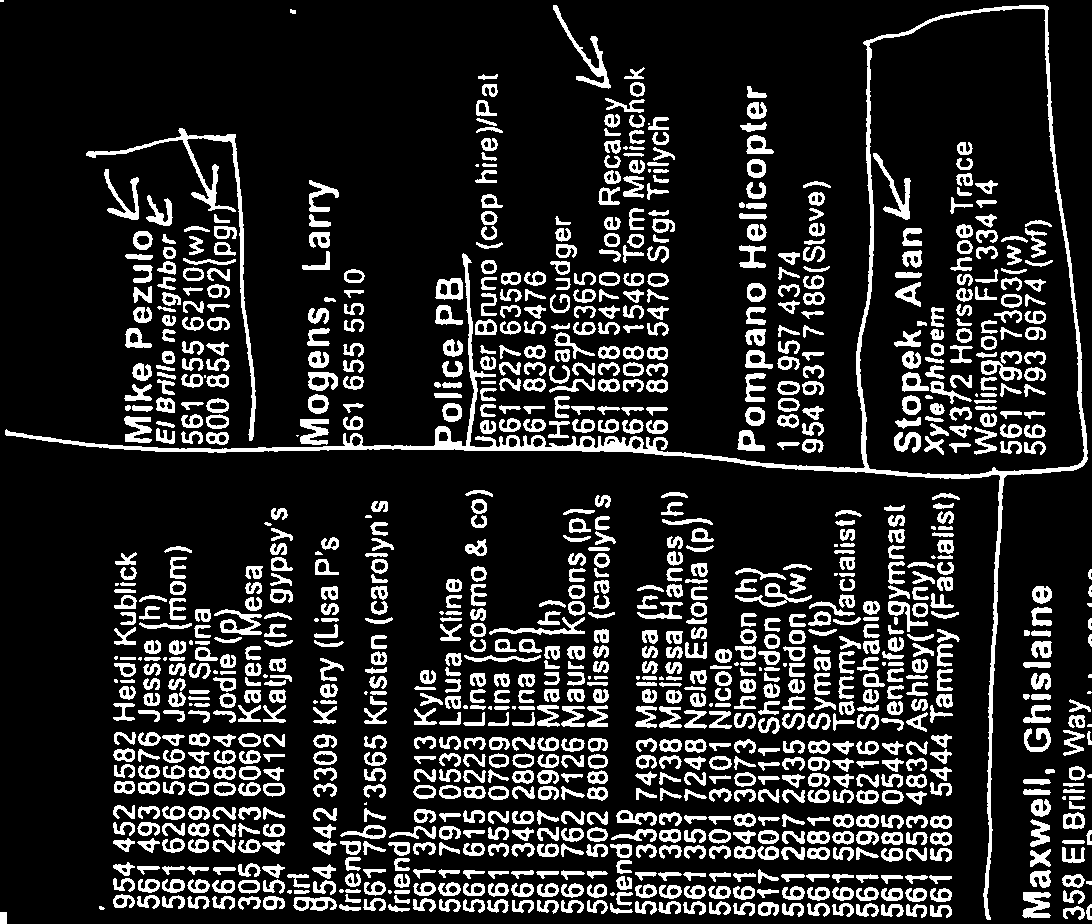 954 452 8582 Heidi Kublick
561 493 8676 Jessie (h)
561 626 5664 Jessie (mom)
561 689 0848 Jill Spina
561 222 0864 Jodie (p)
305 673 6060 Karen Mesa
954 467 0412 Katja (h) gypsy's
girl
954 442 3309 Kiery (Lisa P's
friend)
561 707 3565 Kristen (carolyn's
friend)
561 329 0213 Kyle
561 791 0535 Laura Kline
561 615 8223 Lina (cosmo & co)
561 352 0709 Lina (p)
561 346 2802 Lina (p)
561 627 9966 Maura (h)
561 762 7126 Maura Koons (p)
561 502 8809 Melissa (carolyn's
friend) p
561 333 7493 Melissa (h)
561 383 7738 Melissa Hanes (h)
561 351 7248 Nela Estonia (p)
561 301 3101 Nicole
561 848 3073 Sheridon (h)
917 601 2111 Sheridon (p)
561 227 2435 Sheridon (w)
561 881 6998 Symar (b)
561 588 5444 Tammy (facialist)
561 798 6216 Stephanie
561 685 0544 Jennifer-gymnast
561 253 4832 Ashley(Tony)
561 588 5444 Tammy (Facialist)
Maxwell, Ghislaine
358 El Brillo Way
Mike Pezulo
El Brillo neighbor
561 655 6210(w)
800 854 9192(pgr)
Mogens, Larry
561 655 5510
Police PB
Jennifer Bruno (cop hire)/Pat
561 227 6358
561 838 5476
(Hm)Capt Gudger
561 227 6365
561 838 5470 Joe Recarey
561 308 1546 Tom Melinchok
561 838 5470 Srgt Trilych
Pompano Helicopter
1 800 957 4374
954 931 7186(Steve)
Stopek, Alan
Xyle'phloem
14372 Horseshoe Trace
Wellington, FL 33414
561 793 7303(w)
561 793 9674 (wf)